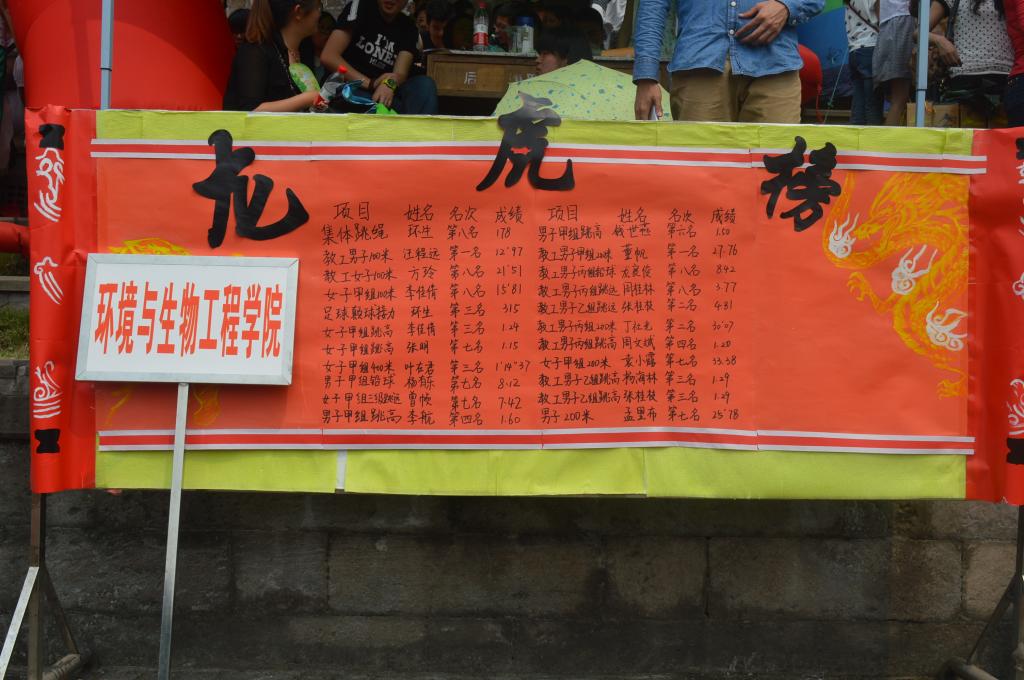 I'M
LONELY
龙虎榜
项目 姓名 名次 成绩 项目 姓名 名次 成绩
集体跳绳 环生 第八名 178 男子甲组跳高 钱世燕 第六名 1.50
教工男子100米 汪程远 第一名 12"97 教工男子甲组200米 董帆 第一名 27.76
教工女子100米 方玲 第八名 21"51 教工男子丙组铅球 龙良俊 第八名 8.42
女子甲组100米 李佳倩 第八名 15"81 教工男子丙组跳远 周桂林 第八名 3.77
足球颠球接力 环生 第三名 315 教工男子乙组跳远 张桂枝 第二名 4.81
女子甲组跳高 李佳倩 第三名 1.24 教工男子丙组200米 丁社光 第二名 30"07
女子甲组跳高 张明 第七名 1.15 教工男子丙组跳高 周文斌 第四名 1.20
女子甲组400米 叶在君 第三名 1'14"37 女子甲组200米 袁小露 第七名 33.58
男子甲组铅球 杨有东 第七名 8.12 教工男子乙组跳高 杨海林 第三名 1.29
女子甲组三级跳远 曾帧 第七名 7.42 教工男子乙组跳高 张桂枝 第三名 1.29
男子甲组跳高 李航 第四名 1.60 男子200米 孟里布 第七名 25"78
环境与生物工程学院